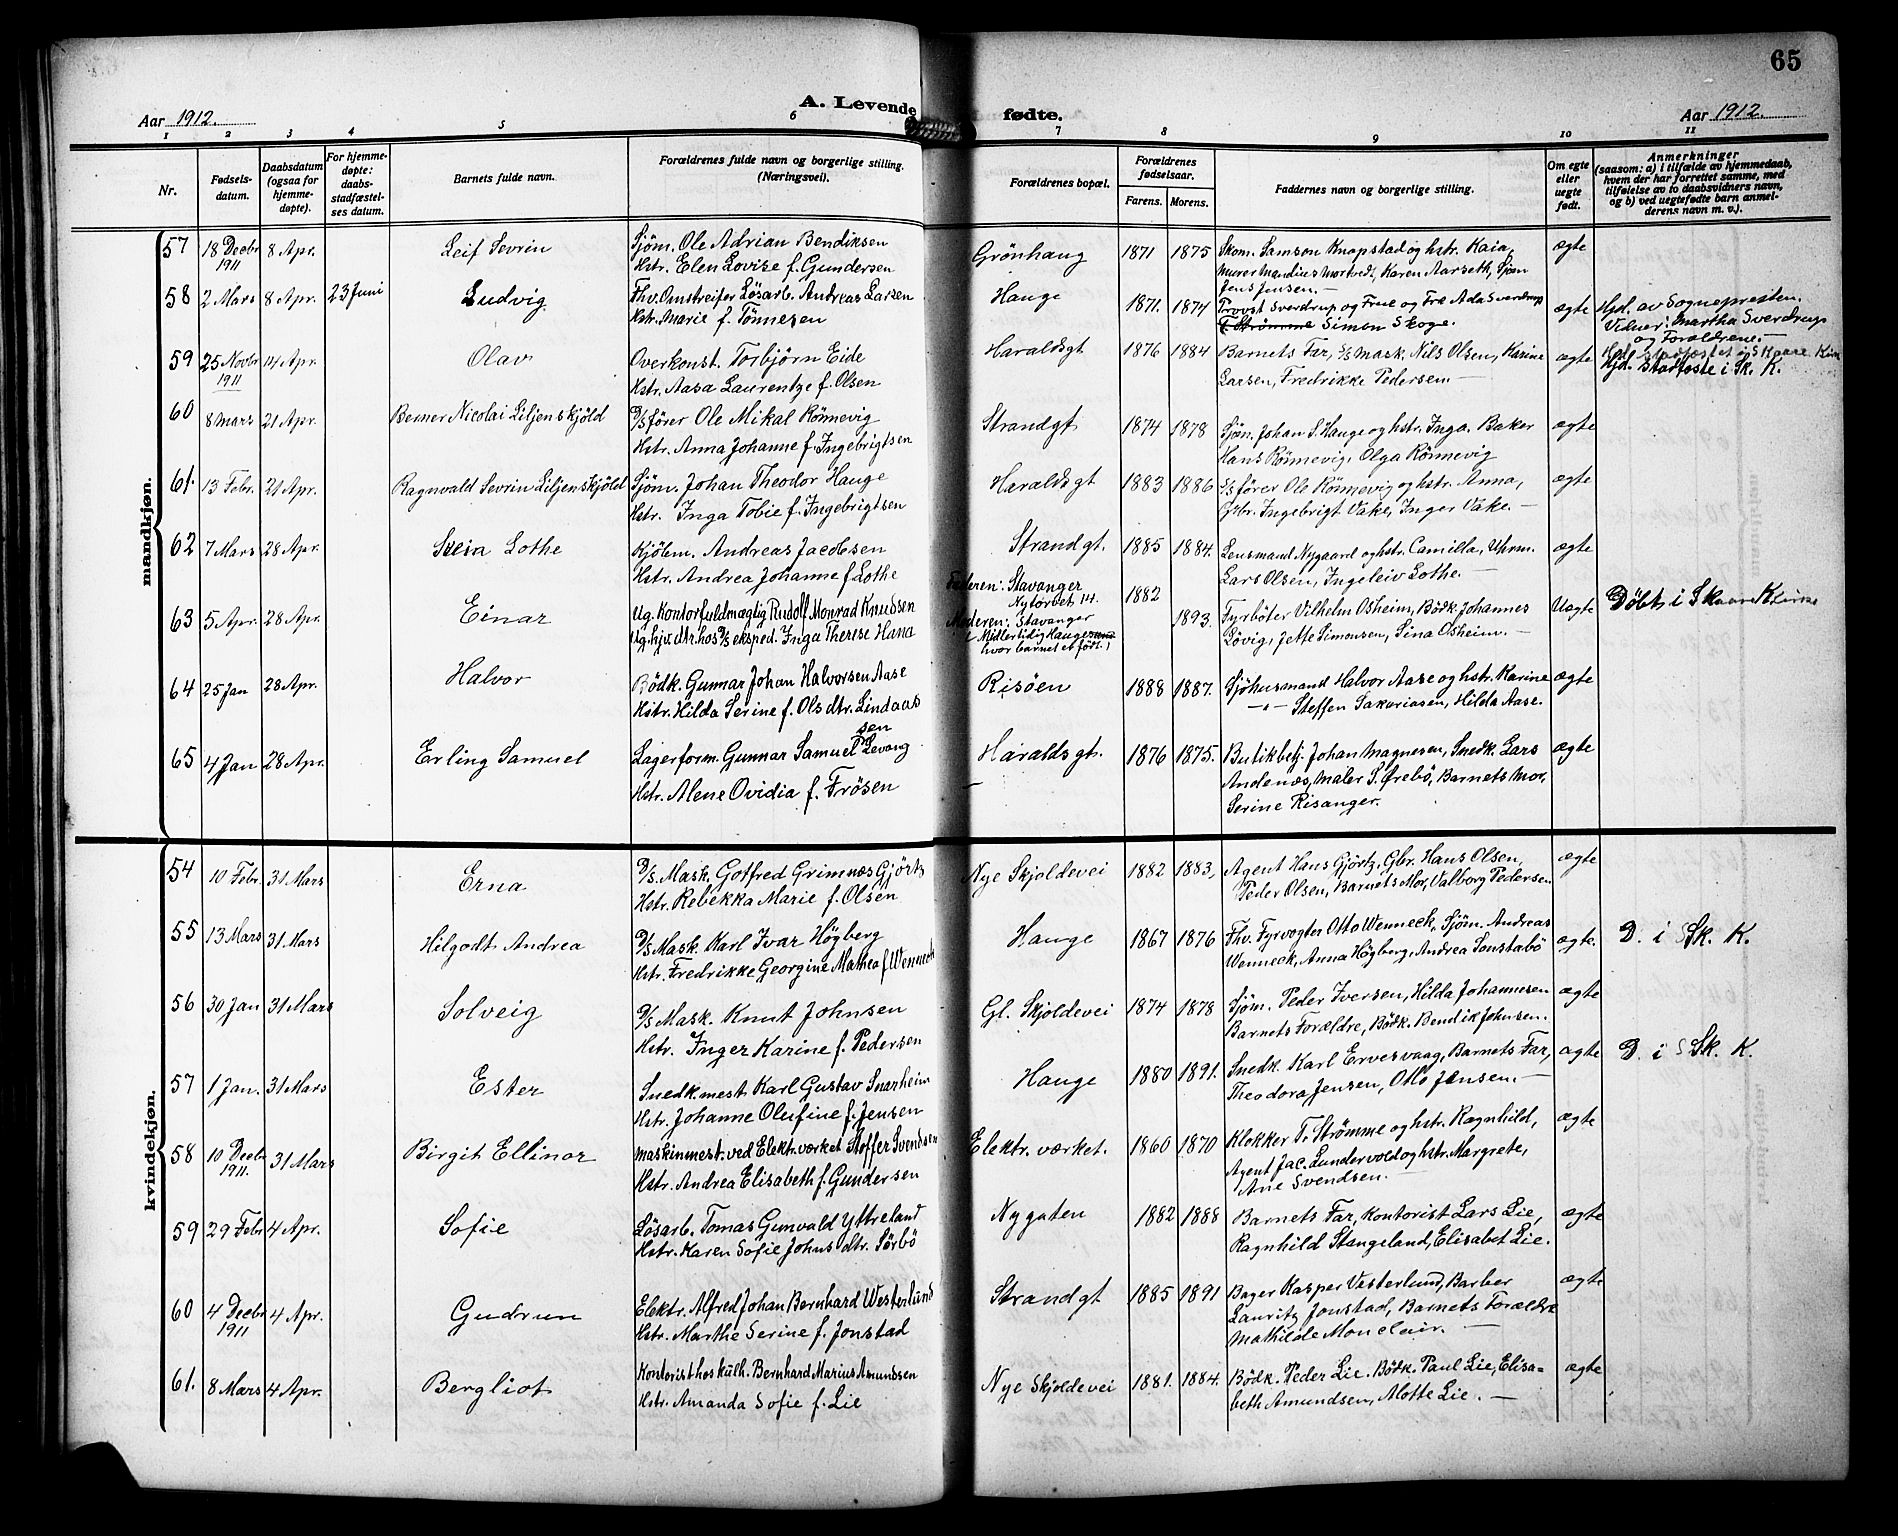 65
Aar 1912.
A. Levende
fødte.
Aar 1912.
1 2 3 4 5 6 7 8 9 10 11
Nr.
Fødsels-
datum.
Daabsdatum
(ogsaa for
hjemme-
døpte).
For hjemme-
døpte:
daabs-
stadfæstel-
ses datum.
Barnets fulde navn.
Forældrenes fulde navn og borgerlige stilling.
(Næringsvei).
Forældrenes bopæl.
Forældrenes
fødselsaar.
Farens. Morens.
Faddernes navn og borgerlige stilling.
Om egte
eller
uegte
født.
Anmerkninger
(saasom: a) i tilfælde av hjemmedaab,
hvem der har forrettet samme, med
tilføielse av to daabsvidners navn,
og b) ved uegtefødte barn anmel-
derens navn m. v.).
mandkjøn.
57 18 Decbr 1911 8 Apr. Leif Sevrin
Sjöm. Ole Adrian Bendiksen
Hstr. Elen Lovise f. Gundersen
Grönhaug 1871 1875
Skom. Samson Knapstad og hstr. Kaia,
Murer Mandius Mortvedt, Karen Aarseth, Sjöm
Jens Jensen. —
ægte
58 2 Mars 8 Apr. 23 Juni Ludvig
Fhv. Omstreifer Lösarb. Andreas Larsen
Hstr. Marie f. Tönnesen
Hauge 1871. 1874
Provst Sverdrup og Frue og Frk Ada Sverdrup
T. Strömme Simon Skoge.
ægte
Hjd. av Sognepresten.
Vidner: Martha Sverdrup
og Forældrene. —
59 25 Novbr 1911 14 Apr. Olav
Overkonst. Torbjörn Eide
Hstr. Aasa Laurentze f. Olsen
Haraldsgt 1876 1884
Barnets Far, S/S Mask. Nils Olsen, Karine
Larsen, Fredrikke Pedersen. —
ægte
Hjd. stadfæstet i Skaare Kirke
Hjd. stadfæste i Sk. K.
60 8 Mars 21 Apr. Berner Nicolai Liljenskjöld
D/S förer Ole Mikal Rönnevig
Hstr. Anna Johanne f. Ingebrigtsen
Strandgt 1874 1878
Sjöm. Johan T. Hauge og hstr. Inga. Baker
Hans Rönnevig, Olga Rönnevig
ægte
61. 13 Febr. 21 Apr. Ragnvald Sevrin Liljenskjöld
Sjöm. Johan Theodor Hauge
Hstr. Inga Tobie f. Ingebrigtsen
Haraldsgt 1883 1886
S/S förer Ole Rönnevig og hstr. Anna,
Gbr. Ingebrigt Vake, Inger Vake. —
ægte
62 7 Mars 28 Apr. Svein Lothe
Kjölem. Andreas Jacobsen
Hstr. Andrea Johanne f. Lothe
Strandgt. 1885 1884.
Lensmand Nygaard og hstr. Camilla, Uhrm.
Lars Olsen, Ingeleiv Lothe. —
ægte
63 5 Apr. 28 Apr. Einar
Ug. Kontorfuldmægtig Rudolf Monrad Knudsen
Ug. hjv. dtr. hos D/S eksped. Inga Therese Hana
Faderen: Stavanger
Nytorvet 14.
Moderen: Stavanger
(Midlertidig Haugesund
hvor barnet er födt.)
1882 1893.
Fyrböter Vilhelm Osheim, Bödk. Johannes
Lövig, Jette Simonsen, Sina Osheim. —
Uægte
Döbt i Skaare Kirke
64 25 Jan 28 Apr. Halvor
Bödk. Gunnar Johan Halvorsen Aase
Hstr. Hilda Serine f. Olsdtr. Lindaas
Risöen 1888 1887.
Sjöhusmand Halvor Aase og hstr. Karine
—"— Steffen Sakariasen, Hilda Aase.
ægte
65 4 Jan 28 Apr. Erling Samuel
Lagerform. Gunnar Samuelsen Levang
Hstr. Alene Ovidia f. Frösen
Haraldsgt. 1876 1875.
Butikbetj. Johan Magnesen, Snedk. Lars
Andenæs, Maler S. Ørebö, Barnets Mor,
Serine Risanger.
ægte
kvindekjøn.
54 10 Febr. 31 Mars Erna
D/S. Mask. Gotfred Grimnæs Gjörtz
Hstr. Rebekka Marie f. Olsen
Nye Skjoldevei 1882 1883,
Agent Hans Gjörtz, Gbr. Hans Olsen,
Peder Olsen, Barnets Mor, Valborg Pedersen
ægte
55 13 Mars 31 Mars Hilgodt Andrea
D/S Mask. Karl Ivar Högberg
Hstr. Fredrikke Georgine Mathea f. Wenneck
Hauge 1867 1876
Fhv. Fyrvogter Otto Wenneck, Sjöm. Andreas
Wenneck, Anna Högberg, Andrea Sonstabö
ægte.
D. i Sk. K.
56 30 Jan 31 Mars Solveig
D/S Mask. Knut Johnsen
Hstr. Inger Karine f. Pedersen
Gl. Skjoldevei 1874 1878
Sjöm. Peder Iversen, Hilda Johannesen
Barnets Forældre, Bödk. Bendik Johnsen.
ægte
57 1 Jan. 31 Mars Ester
Snedk. mest. Karl Gustav Snarheim
Hstr. Johanne Olufine f. Jensen
Hauge 1880 1891.
Snedk. Karl Ervesvaag, Barnets Far,
Theodora Jensen, Otto Jensen. —
ægte
D. i Sk. K.
58 10 Decbr 1911. 31 Mars Birgit Ellinor
Maskinmest. ved Elektr. værket Stoffer Svendsen
Hstr. Andrea Elisabeth f. Gundersen
Elektr. værket. 1860 1870
Klokker T. Strömme og hstr. Ragnhild,
Agent Jac. Lundervold og hstr. Margrete,
Ane Svendsen. —
ægte
59 29 Febr 4 Apr. Sofie
Lösarb. Tomas Gunvald Yttreland
Hstr. Karen Sofie Johnsdtr. Sörbö
Nygaten 1882 1888
Barnets Far, Kontorist Lars Lie,
Ragnhild Stangeland, Elisabet Lie.
ægte
60 4 Decbr 1911 4 Apr. Gudrun
Elektr. Alfred Johan Bernhard Westerlund
Hstr. Marthe Serine f. Jonstad
Strandgt 1885 1891
Bager Kasper Vesterlund, Barber
Lauritz Jonstad, Barnets Forældre
Mathilde Monclair. —
ægte
61. 8 Mars 4 Apr. Bergliot
Kontorist hos kulh. Bernhard Marius Amundsen
Hstr. Amanda Sofie f. Lie
Nye Skjoldevei 1881. 1884.
Bödk. Peder Lie. Bödk. Paul Lie, Elisa-
beth Amundsen, Alotte Lie. —
ægte